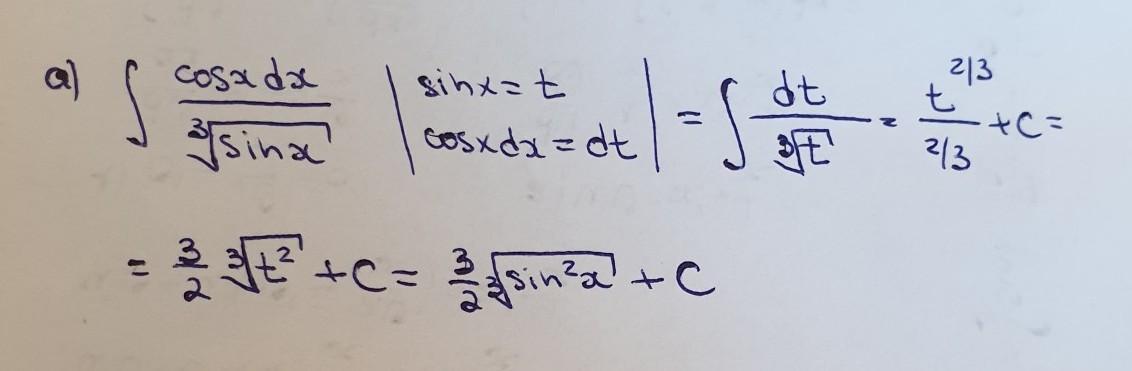 a) ∫ cosx dx / ∛sinx | sinx = t cosxdx = dt | = ∫ dt / ∛t = t^2/3 / 2/3 + C =
= 3/2 ∛t² + C = 3/2 ∛sin²x + C